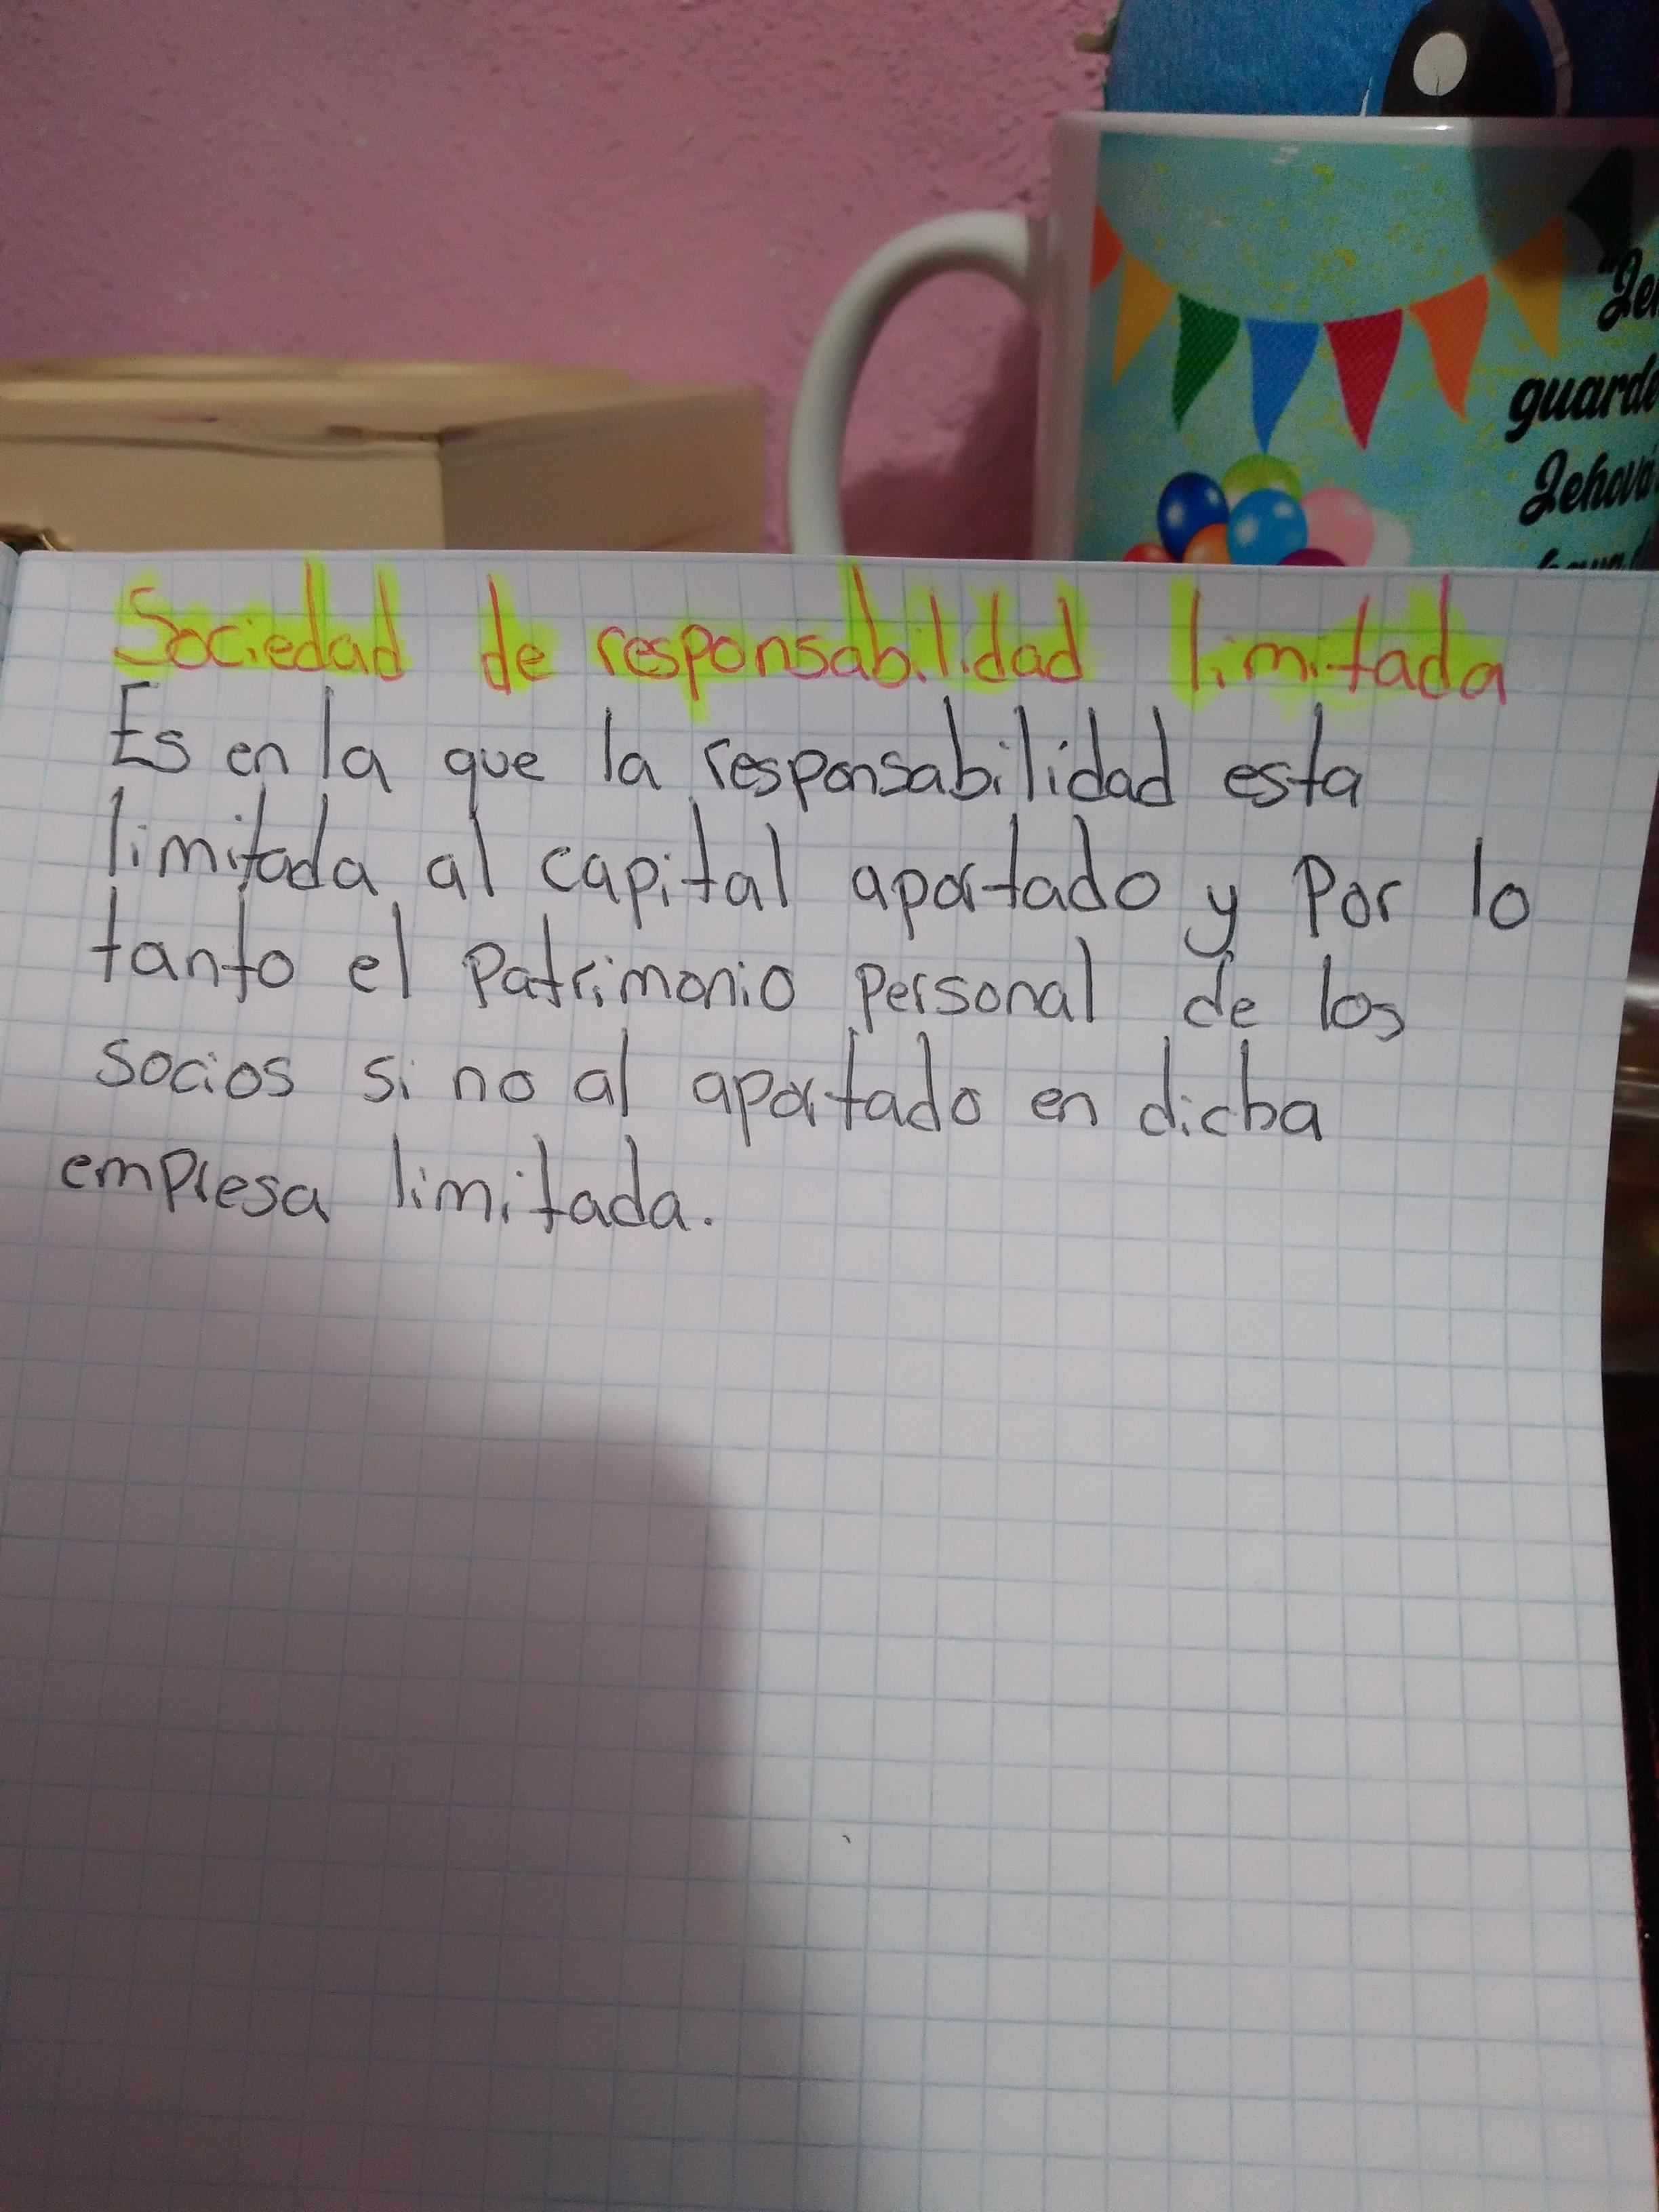 "Je
guarde
Jehová
Sociedad de responsabilidad limitada
Es en la que la responsabilidad esta
limitada al capital aportado y Por lo
tanto el Patrimonio Personal de los
socios si no al aportado en dicha
empresa limitada.